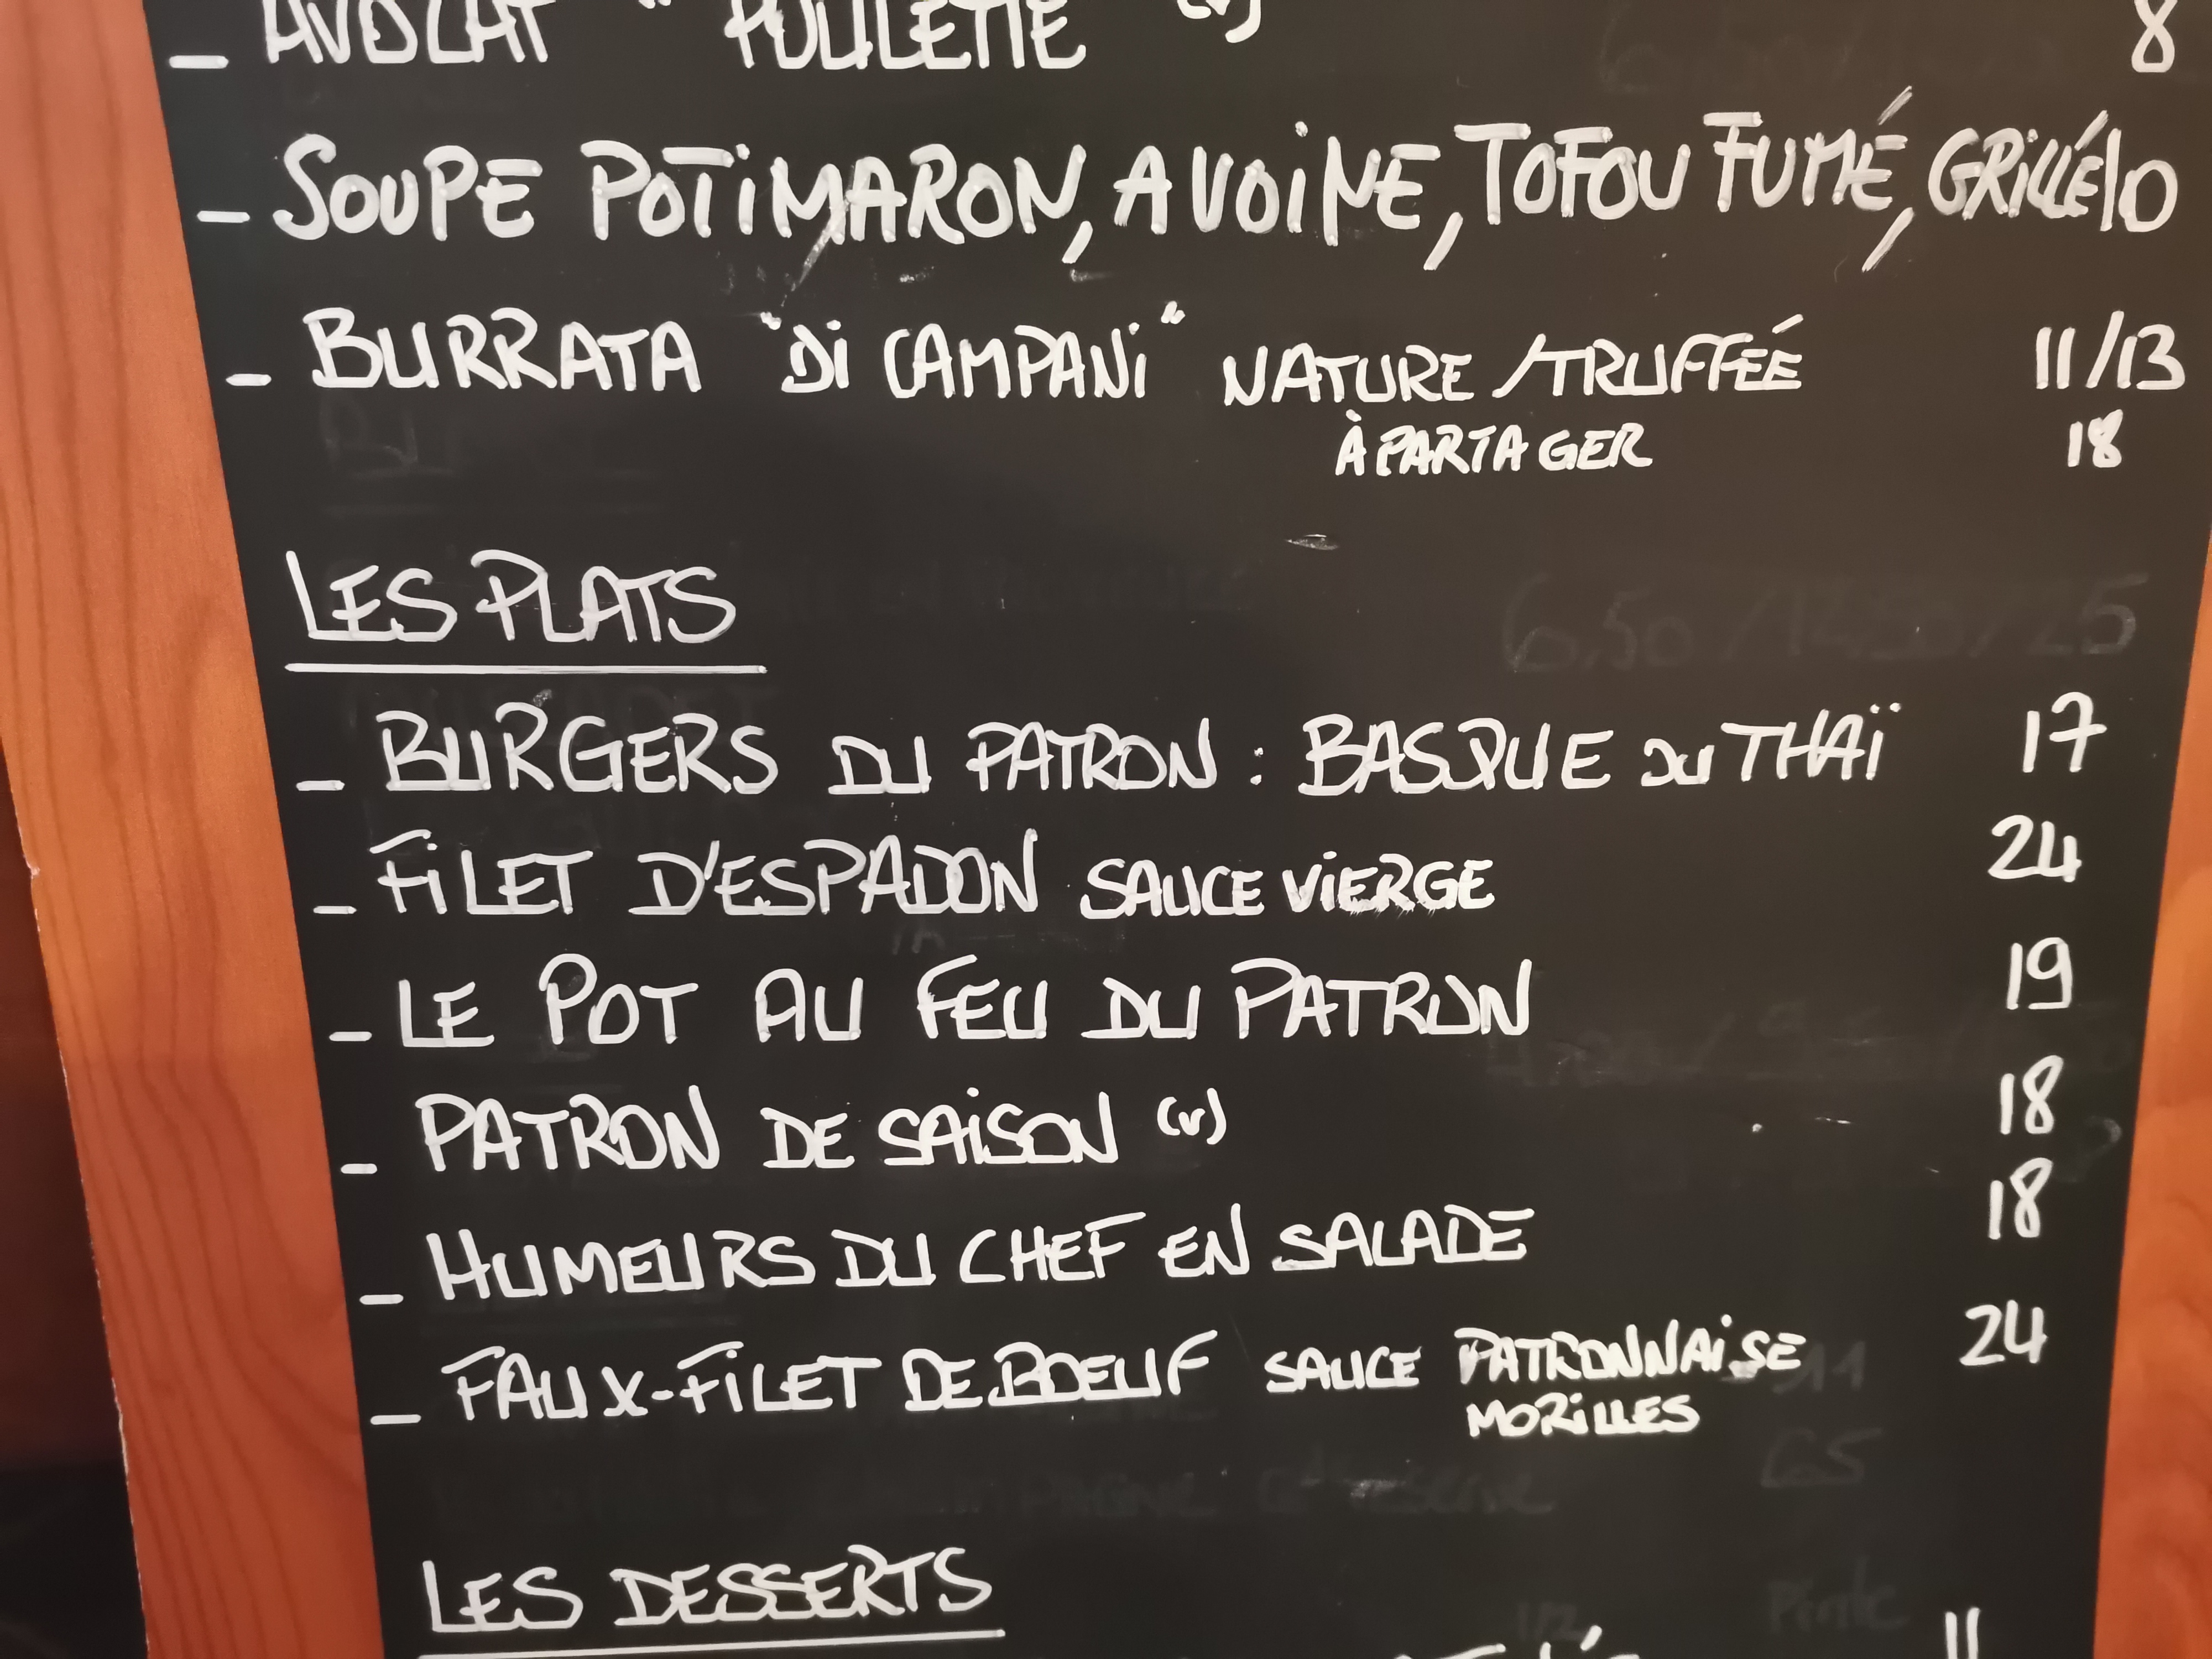 - AVOCAT " POULETTE (v) 8
- SOUPE POTIMARON, AVOINE, TOFOU FUMÉ, GRILLÉ 10
- BURRATA "DI CAMPANI" NATURE / TRUFFÉE 11/13
À PARTAGER 18
LES PLATS
- BURGERS DU PATRON : BASQUE OU THAÏ 17
- FILET D'ESPADON SAUCE VIERGE 24
- LE POT AU FEU DU PATRON 19
- PATRON DE SAISON (v) 18
- HUMEURS DU CHEF EN SALADE 18
- FAUX-FILET DE BOEUF SAUCE PATRONNAISE 24
MORILLES
LES DESSERTS
11